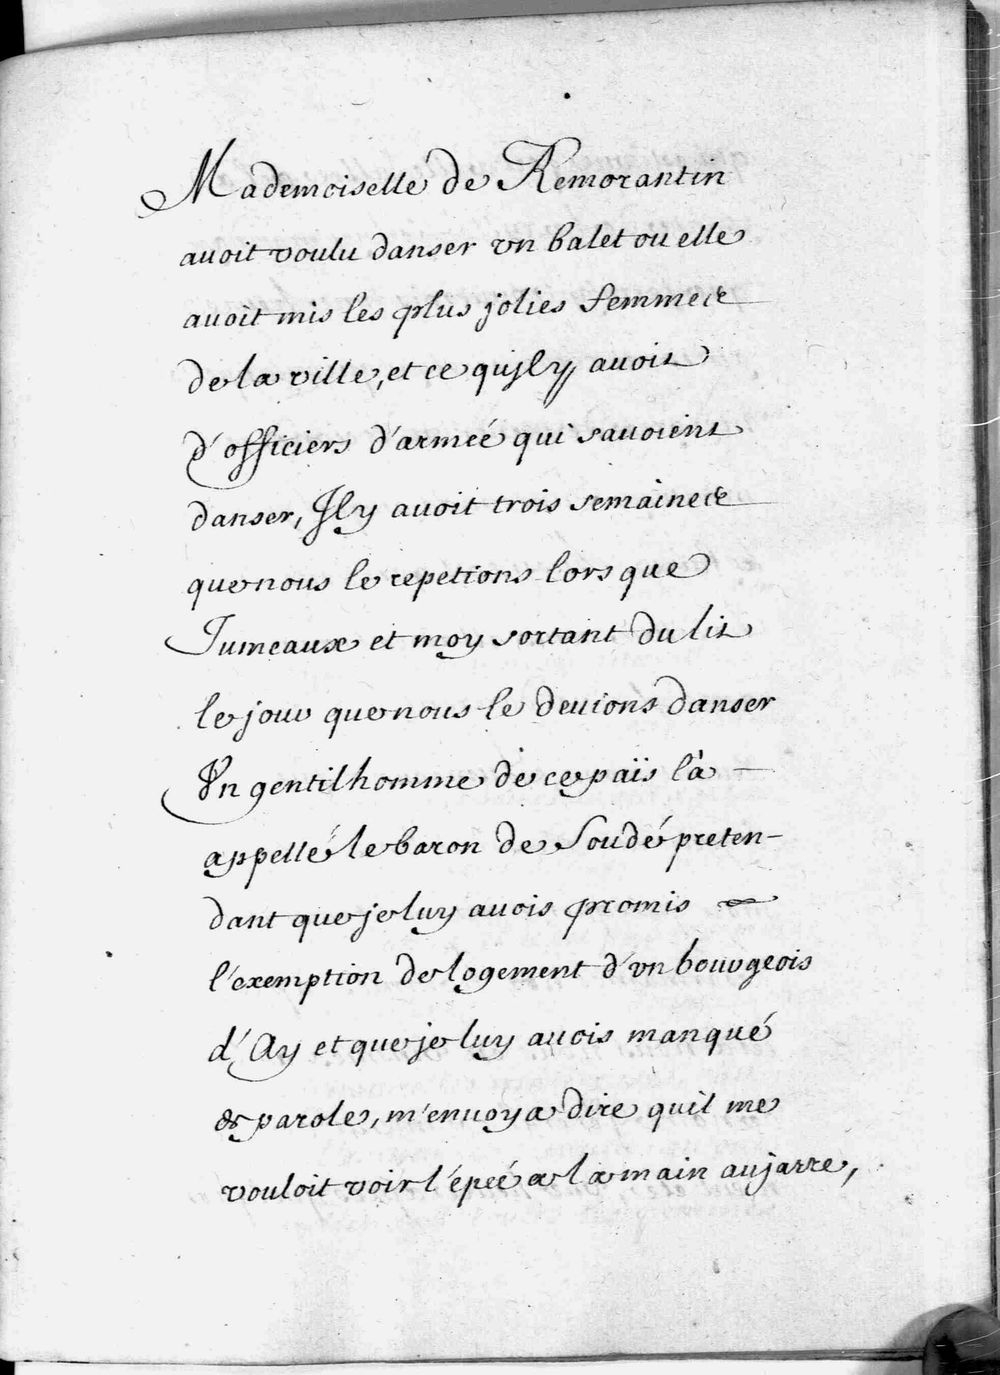 Mademoiselle de Remorantin
avoit voulu danser vn balet ou elle
avoit mis les plus jolies femmes
de la ville, et ce qujly avoit
d'officiers d'armeé qui savoient
danser, Jly avoit trois semaines
que nous le repetions lors que
Jumeaux et moy sortant du lit
le jour que nous le devions danser
Vn gentilhomme de ce païs là —
appellé le baron de Soudé preten-
dant que je luy avois promis
l'exemption de logement d'vn bourgeois
d'Ay et que je luy avois manqué
de parole, m'envoya dire quil me
vouloit voir l'épeé a la main au jarre,